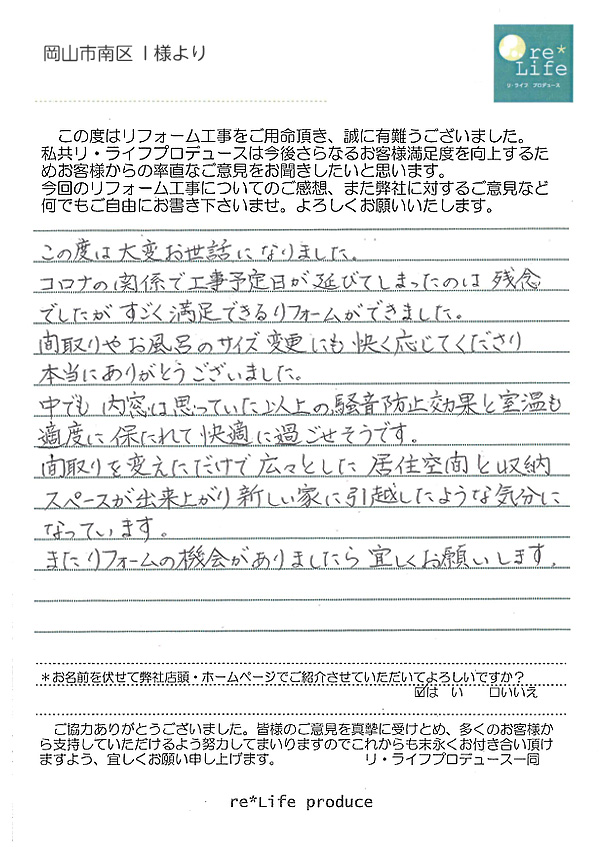 岡山市南区 I 様より
re*
Life
リ・ライフ プロデュース
この度はリフォーム工事をご用命頂き、誠に有難うございました。
私共リ・ライフプロデュースは今後さらなるお客様満足度を向上するた
めお客様からの率直なご意見をお聞きしたいと思います。
今回のリフォーム工事についてのご感想、また弊社に対するご意見など
何でもご自由にお書き下さいませ。よろしくお願いいたします。
この度は大変お世話になりました。
コロナの関係で工事予定日が延びてしまったのは残念
でしたがすごく満足できるリフォームができました。
間取りやお風呂のサイズ変更にも快く応じてくださり
本当にありがとうございました。
中でも内窓は思っていた以上の騒音防止効果と室温も
適度に保たれて快適に過ごせそうです。
間取りを変えただけで広々とした居住空間と収納
スペースが出来上がり新しい家に引越したような気分に
なっています。
またリフォームの機会がありましたら宜しくお願いします。
*お名前を伏せて弊社店頭・ホームページでご紹介させていただいてよろしいですか?
☑は い □いいえ
ご協力ありがとうございました。皆様のご意見を真摯に受けとめ、多くのお客様か
ら支持していただけるよう努力してまいりますのでこれからも末永くお付き合い頂け
ますよう、宜しくお願い申し上げます。 リ・ライフプロデュース一同
re*Life produce